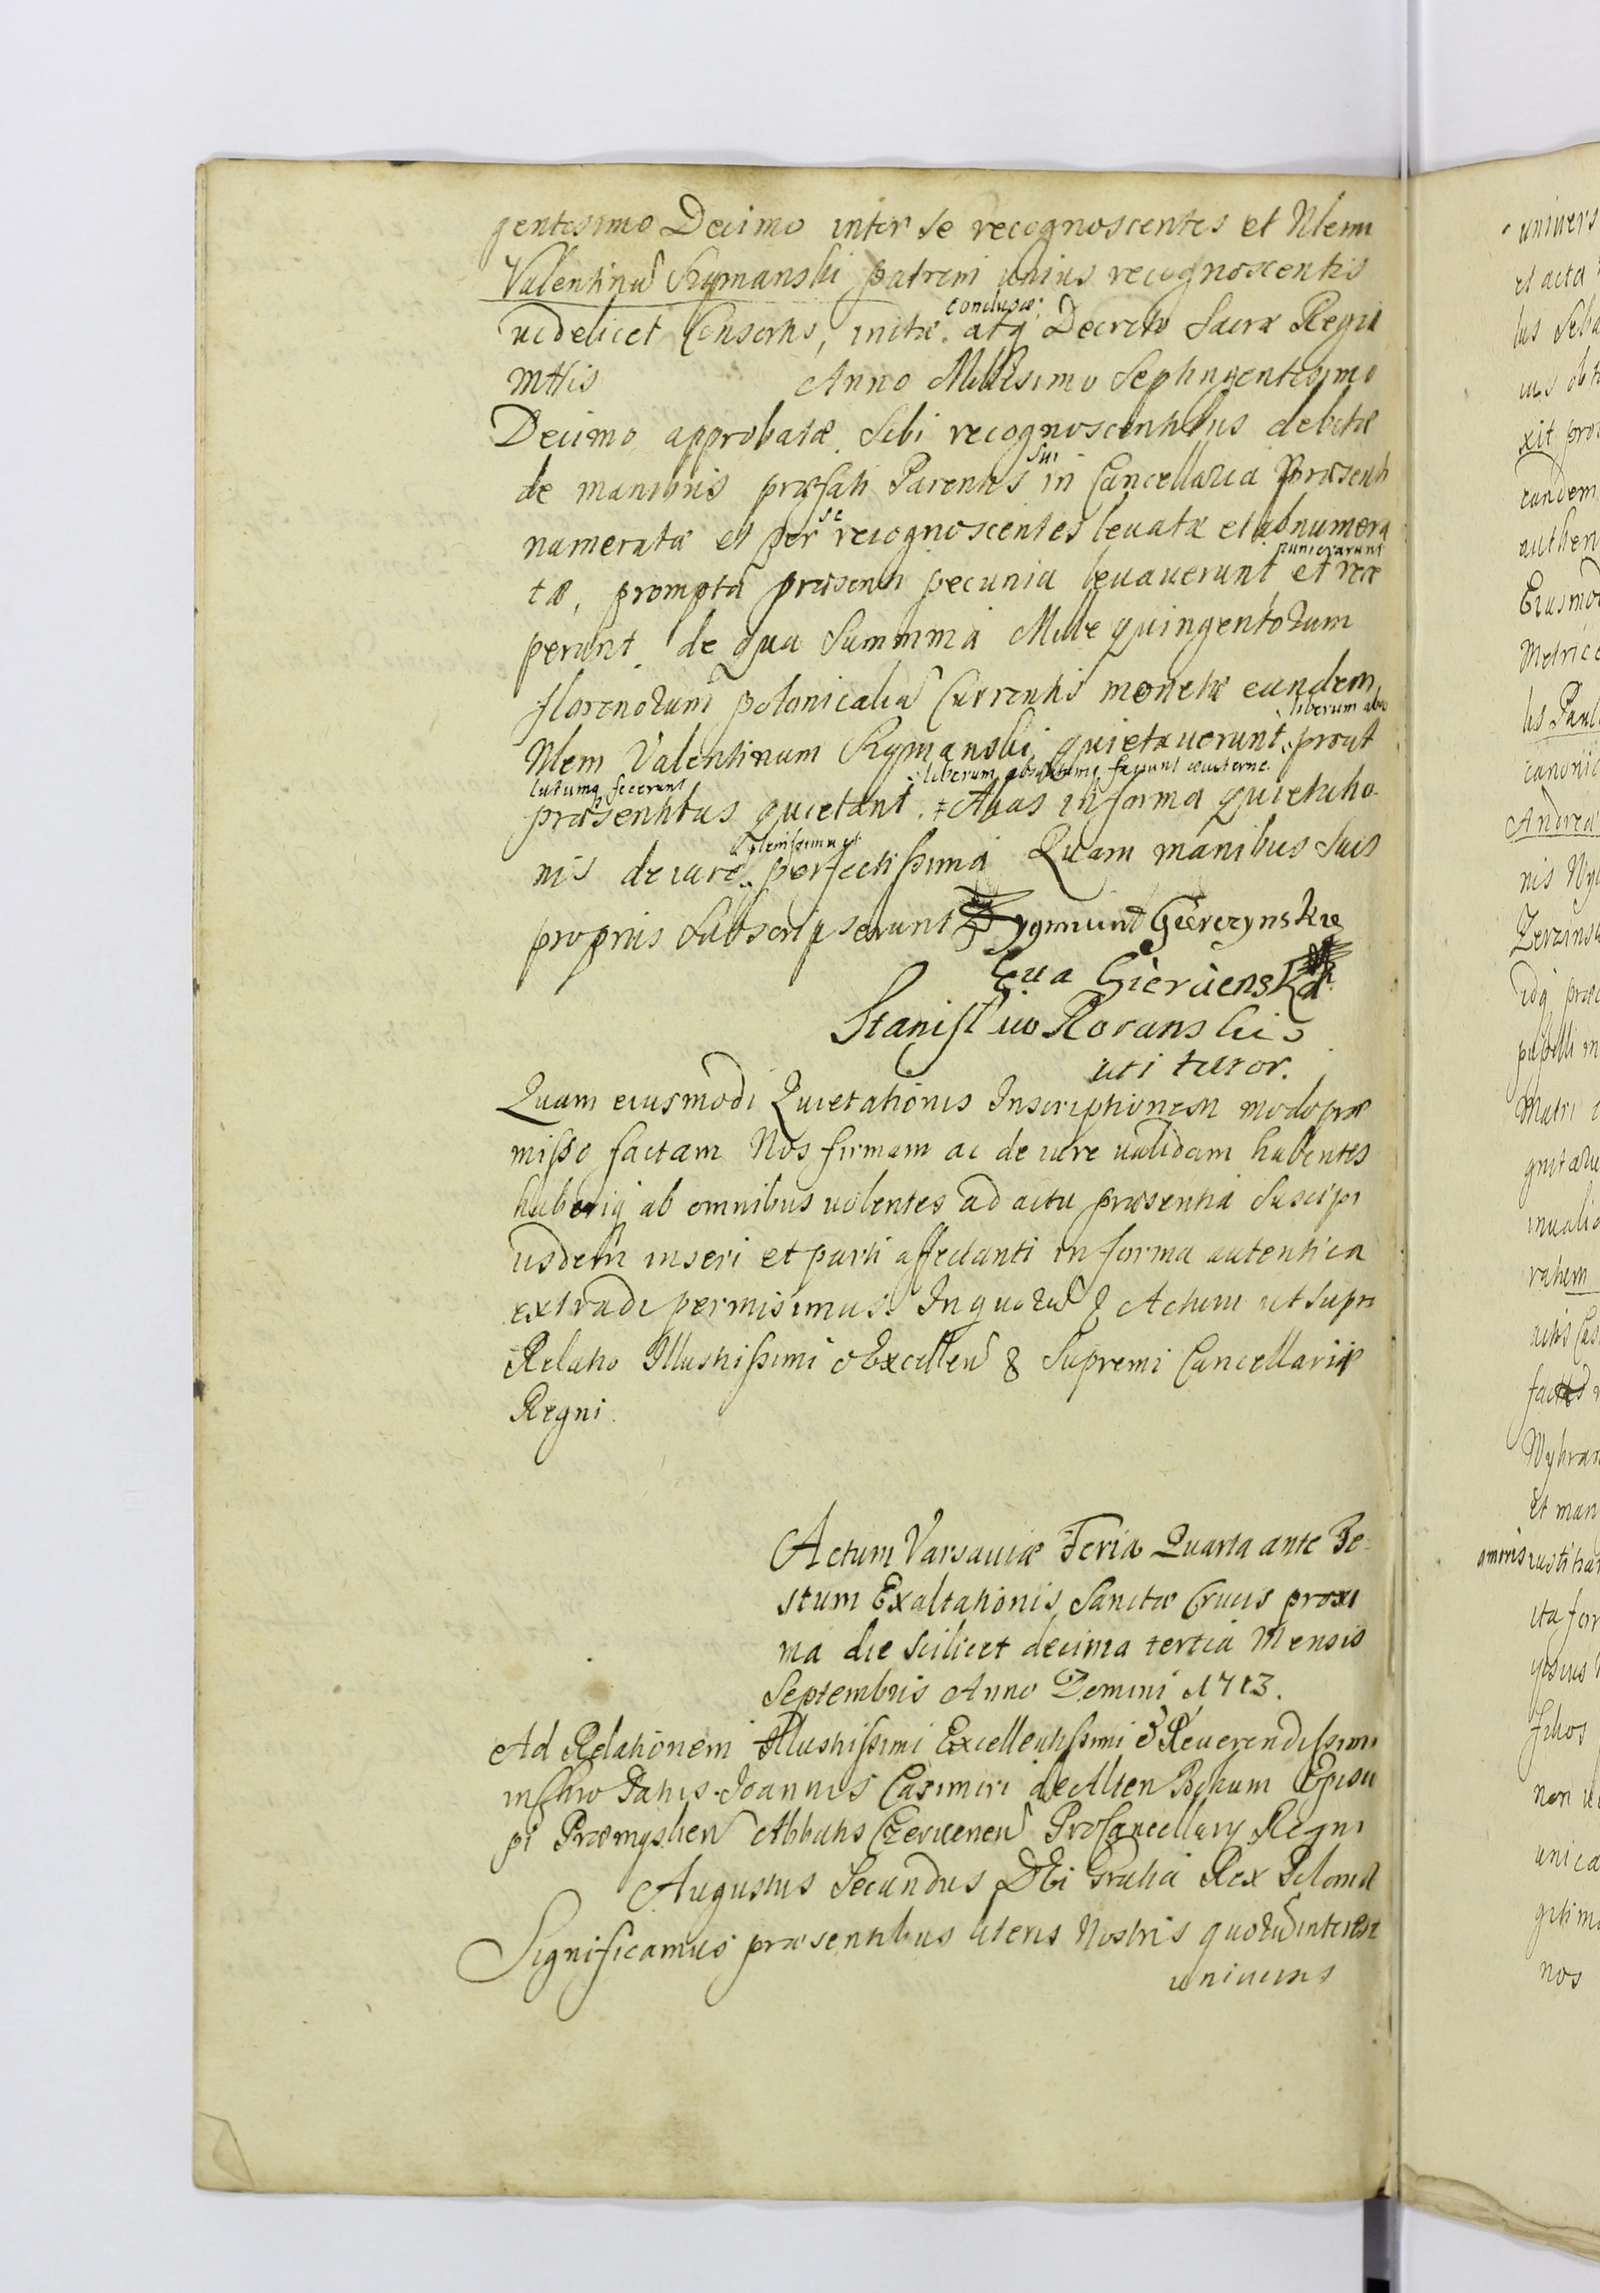 gentesimo Decimo inter se recognoscentes et Nlem
Valentinu Rymanski patrem unius recognoscentis
videlicet Consortis, initæ conclusæ atq Decreto Sacræ Regiæ
Mttis Anno Millesimo Septingentesimo
Decimo approbatæ sibi recognoscentibus debitæ
de manibus præfati Parentis sui in Cancellaria præsenti
numeratæ et per se recognoscentes levatæ et adnumera
tæ, prompta præsenti pecunia levaverunt et rece
perunt de qua Summa Mille quingentorum
florenorum polonicaliu Currentis monetæ eundem
Nlem Valentinum Rymanski quietaverunt liberum abso
lutumq fecerunt prout
præsentibus quietant liberum absolutumq faciunt
Ahas in forma quietatio-
nis de iure plenissima et perfectissima Quam manibus suis
propriis subscripserunt Zygmunt Gierczynski
Eua Gieruenska
Stanisł uo Roranski
uti tutor.
Quam eiusmodi Quietationis Inscriptionem modo præ
misso factam Nos firmam ac de iure validam habentes
haberiq ab omnibus volentes ad acta præsentia suscipi
iisdem inseri et parti affectanti in forma autentica
extradi permisimus. In quoru & Actum ut supra
Relatio Illustrissimi Excellen & Supremi Cancellarii
Regni.
Actum Varsaviæ Feria Quarta ante Fe-
stum Exaltationis Sanctæ Crucis proxi
ma die scilicet decima tertia Mensis
Septembris Anno Domini 1713.
Ad Relationem Illustrissimi Excellentissimi & Reverendissimi
in Chro Patris Joannis Casimiri de Alten Bokum Episco
pi Præmyslien Abbatis Czervenen ProCancellarij Regni
Augustus Secundus DEi Gratia Rex Poloniæ
Significamus præsentibus literis Nostris quoru interest
univers
univers
et acta
lus Seba
xit pro
eandem
authen
Eiusmodi
Metrice
lis Paul
canonic
Andrea
nis
idq præ
pupilli in
Matri
invalid
rahem
actis Cas
factas
Et man
omnis
ita for
ypsius
filios
non
unica
gitima
nos